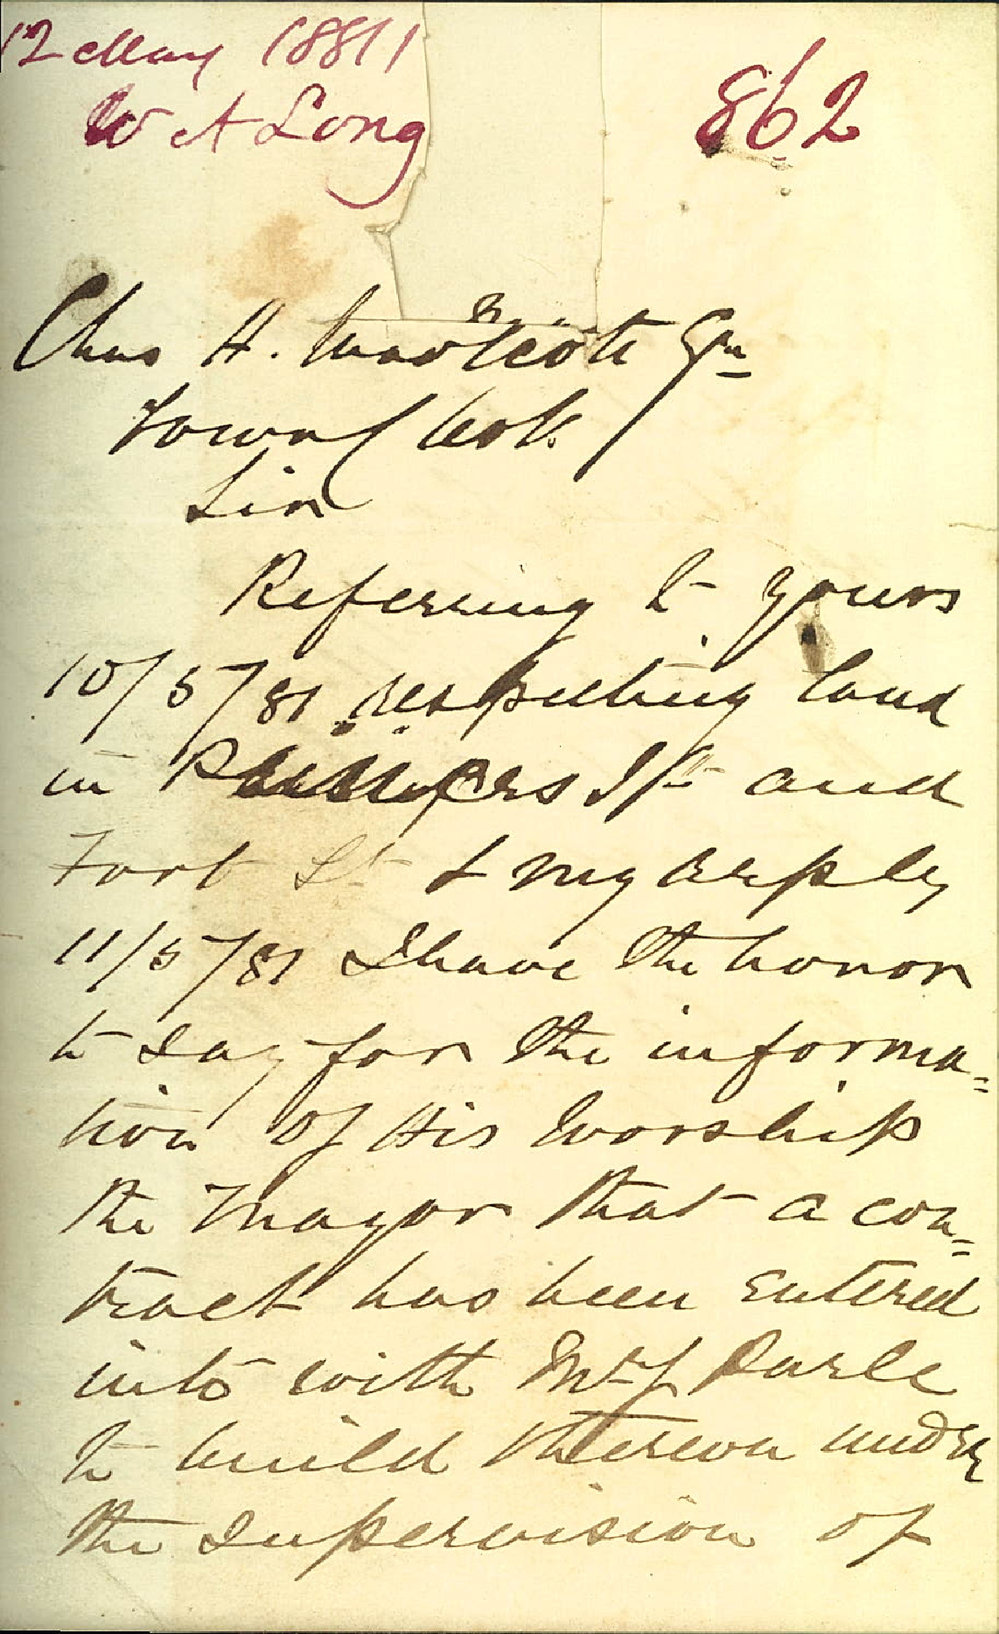 12 May 1881
W A Long
862
Chas H. Woolcott Esqr
Town Clerk
Sir
Referring to yours
10/5/81 respecting land
in Phillips St and
Fort St & my reply
11/5/81 I have the honor
to say for the informa=
tion of His Worship
the Mayor that a con=
tract has been entered
into with Mr J
to build thereon under
the supervision of